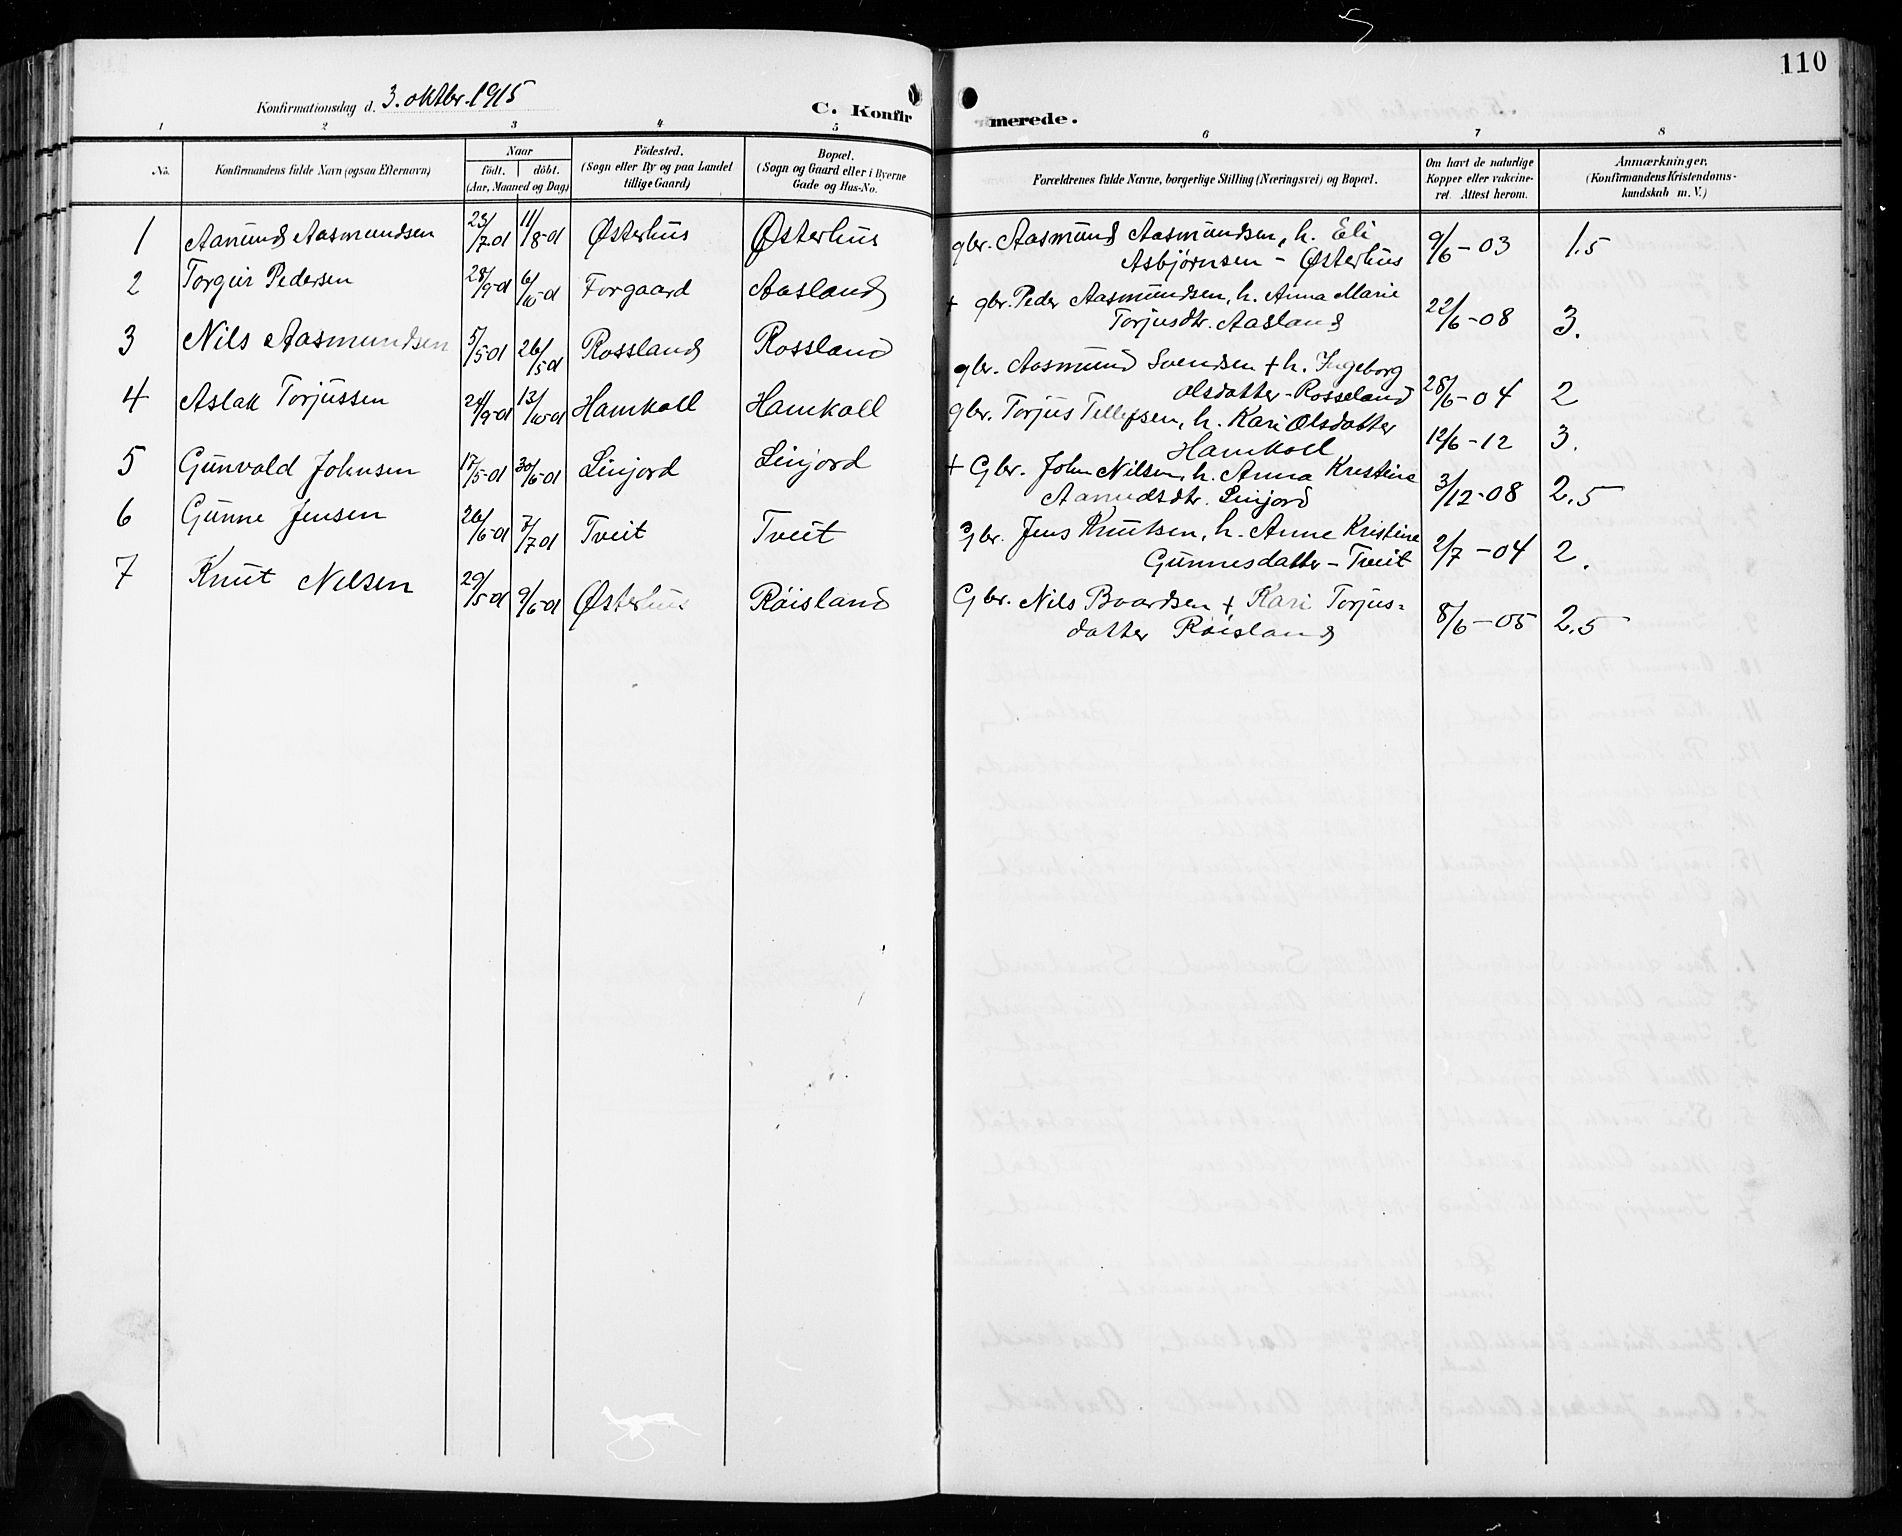 110
Konfirmationsdag d. 3. oktbr. 1915
C. Konfirmerede.
1 2 3 4 5 6 7 8
No.
Konfirmandens fulde Navn (ogsaa Efternavn)
Naar
födt. döbt.
(Aar, Maaned og Dag)
Födested.
(Sogn eller By og paa Landet
tillige Gaard)
Bopæl.
(Sogn og Gaard eller i Byerne
Gade og Hus-No.
Forældrenes fulde Navne, borgerlige Stilling (Næringsvei) og Bopæl.
Om havt de naturlige
Kopper eller vakcine-
ret. Attest herom.
Anmærkninger.
(Konfirmandens Kristendoms-
kundskab m. V.)
1 Aanund Aasmundsen 23/7-01 11/8-01 Østerhus Østerhus gbr. Aasmund Aasmundsen, h. Eli
Asbjørnsen - Østerhus 9/6-03 1.5
2 Torgus Pedersen 28/9-01 6/10-01 Forgaard Aasland + gbr. Peder Aasmundsen, h. Anna Marie
Torjusdtr. Aasland 22/6-08 3.
3 Nils Aasmundsen 5/5-01 26/5-01 Rossland Rossland gbr. Aasmund Svendsen + h. Ingeborg
Olsdatter - Rosseland 28/6-04 2
4 Aslak Torjussen 24/9-01 13/10-01 Hamkoll Hamkoll gbr. Torjus Tellefsen, h. Kari Olsdatter
Hamkoll 12/6-12 3.
5 Gunvald Johnsen 17/5-01 30/6-01 Linjord Linjord + Gbr. John Nilsen, h. Anna Kristine
Aanudsdtr. Linjord 3/12-08 2.5
6 Gunne Jensen 26/6-01 7/7-01 Tveit Tveit Gbr. Jens Knutsen, h. Anne Kristine
Gunnesdatter - Tveit 2/7-04 2.
7 Knut Nilsen 29/5-01 9/6-01 Østerhus Röisland Gbr. Nils Baardsen + Kari Torjus=
datter Röisland 8/6-05 2.5